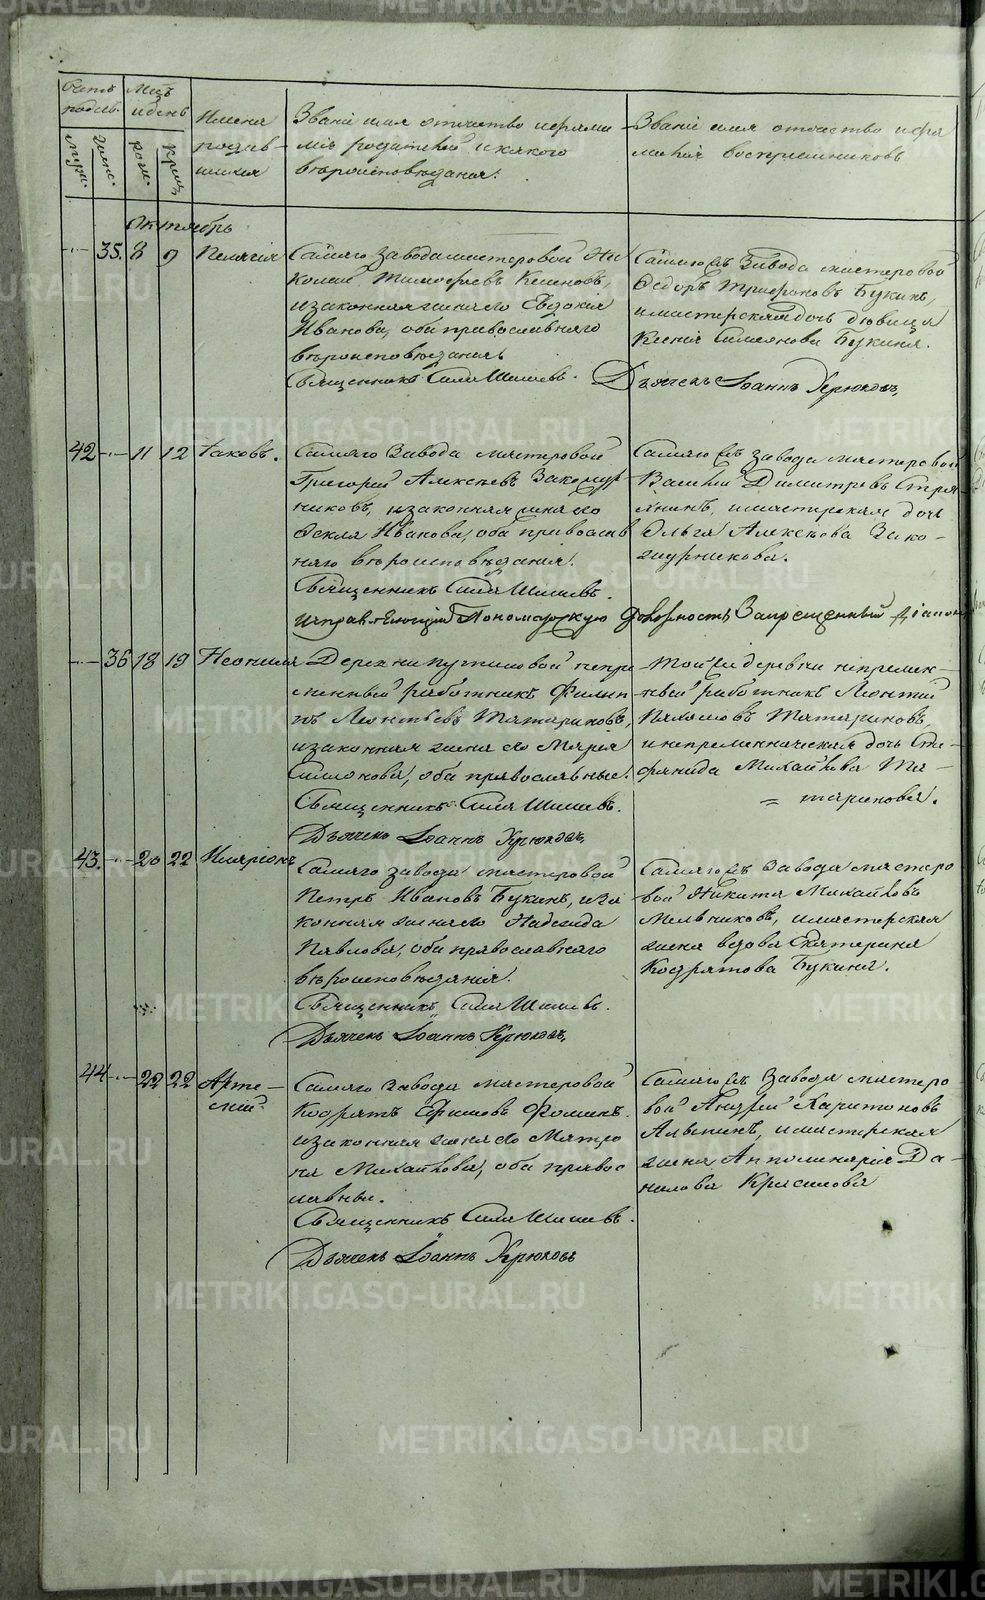 METRIKI.GASO-URAL.RU
Счетъ родив. Мцъ и день
Имена родившихся
Званіе имя отчество и фамилія родителей и какого вѣроисповѣданія.
Званіе имя отчество и фамилія воспріемниковъ
муж. женс. рож. крещ.
Октябрь
35. 8 9 Пелагія
Самаго завода мастеровой Ни-
колай Тимофѣевъ
и законная жена его Евдокія
Иванова, оба православнаго
вѣроисповѣданія
Священникъ Сила Шишевъ.
Самаго съ Завода мастеровой
Ѳедоръ Трифоновъ Букинъ,
и мастерская дочь дѣвица
Ксенія Симеонова Букина.
Дьячекъ Іоаннъ Крюковъ,
42 11 12 Іаковъ.
Самаго Завода мастеровой
Григорій Алексѣевъ Закожур-
никовъ, и законная жена его
Ѳекла Иванова, оба православ
наго вѣроисповѣданія.
Священникъ Сила Шишевъ.
Самаго съ завода мастеровой
Василій Димитревъ
и мастерская дочь
Ольга Алексѣева Зако-
журникова.
Исправляющій Пономарскую должность Запрещенный Діаконъ
36 18 19 Неонила
Деревни Путиловой непре
менный работникъ Филип
пъ Леонтьевъ Татариновъ,
и законная жена его Марія
оба православные.
Священникъ Сила Шишевъ.
Дьячекъ Іоаннъ Крюковъ,
Той же деревни непремен-
ный работникъ Леонтій
Татариновъ,
и непременническая дочь Сте-
фанида Михайлова Та-
= таринова.
43. 20 22 Иларіонъ
Самаго завода мастеровой
Петръ Ивановъ Букинъ, и за
конная жена его Надежда
Павлова, оба православнаго
вѣроисповѣданія.
Священникъ Сила Шишевъ.
Дьячекъ Іоаннъ Крюковъ,
Самаго съ Завода мастеро
вой Никита Михайловъ
Мельниковъ, и мастерская
жена вдова Екатерина
Кодратова Букина.
44 22 22 Арте-
мій.
Самаго Завода мастеровой
Кодратъ Ефимовъ Фоминъ.
и законная жена его Матро
на Михайлова, оба правос
лавны.
Священникъ Сила Шишевъ.
Дьячекъ Іоаннъ Крюковъ
Самаго съ Завода мастеро-
вой Андрей Харитоновъ
и мастерская
жена Апполинарія Да-
нилова Красилова